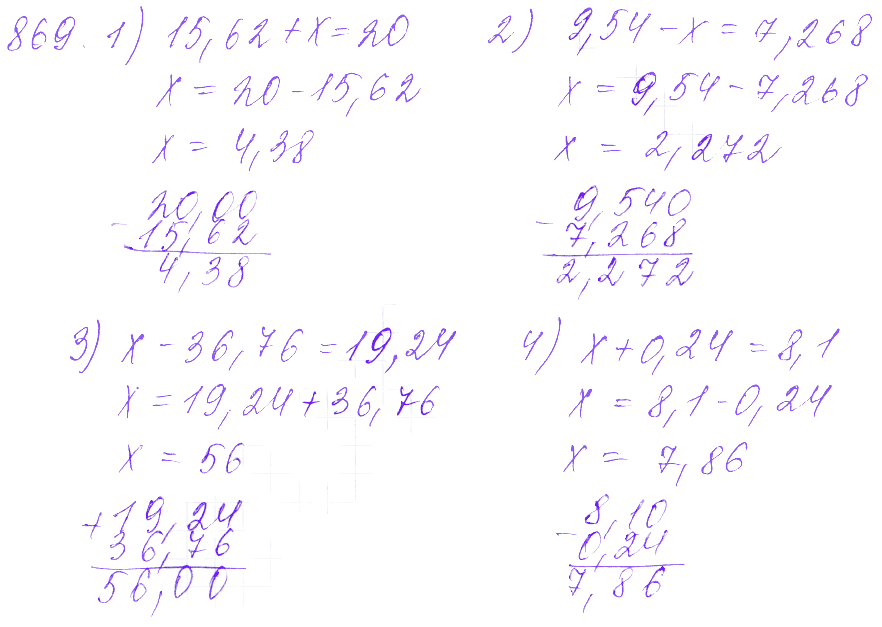 869. 1) 15,62 + x = 20
x = 20 - 15,62
x = 4,38
- 20,00
15,62
4,38
2) 9,54 - x = 7,268
x = 9,54 - 7,268
x = 2,272
- 9,540
7,268
2,272
3) x - 36,76 = 19,24
x = 19,24 + 36,76
x = 56
+ 19,24
36,76
56,00
4) x + 0,24 = 8,1
x = 8,1 - 0,24
x = 7,86
- 8,10
0,24
7,86